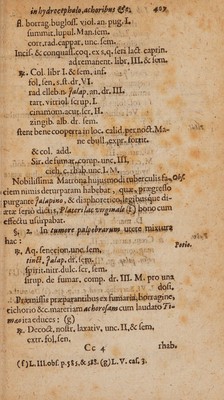 in hydrocephalo, achoribus &c. 407
ſt. borrag. bugloſſ. viol. an. pug. I.
ſummit. lupul. Man. ſem.
cort. rad. cappar. unc. ſem.
Inciſ. & conquaſſ. coq. ex s. q. ſeri lact. caprin.
ad remanent. libr. III. & ſem.
℞. Col. libr. I. & ſem. inf.
fol. ſen. ſ. ſt. dr. VI.
rad. elleb. n. Jalap. an. dr. III.
tart. vitriol. ſcrup. I.
cinamom. acut. ſer. II.
zingib. alb. dr. ſem.
ſtent bene cooperta in loc. calid. per noct. Ma-
ne ebull. expr. fortit.
& col. add.
Sir. de fumar. comp. unc. III,
cich. c. rhab. unc. I. M.
Nobiliſſima Matrona hujusmodi tuberculis fa-
ciem nimis deturpatam habebat, quæ, prægreſſo
purgante Jalapino, & diaphoretico, legitimoque di-
ætæ ſerio ductis, bono cum
effectu uſurpabat.
§. 2. In tumore palpebrarum utere mixtura
hac: Potio.
℞. Aq. ſenecion. unc. ſem.
tinct. Jalap. dr. ſem.
ſpirit. nitr. dulc. ſcr. ſem.
sirup. de fumar. comp. dr. III. M. pro una
doſi.
Præmiſſis præparantibus ex fumaria, borragine,
cichorio &c. materiam acheroſam cum laudato Ti-
mæo ita educes: (g)
℞. Decoct. noſtr. laxativ. unc. II. & ſem.
extr. fol. ſen.
Cc 4 rhab.
(f) L. III. obſ. p. 585. & 588. (g) L. V. caſ. 3.